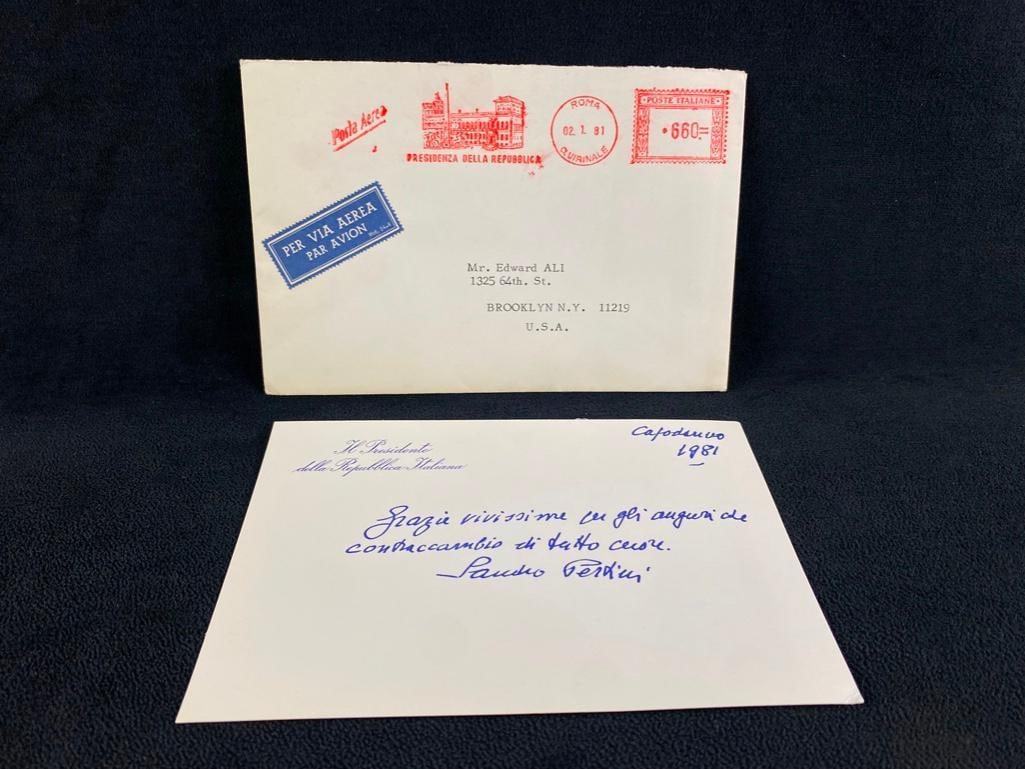 Posta Aerea
PRESIDENZA DELLA REPUBBLICA
ROMA
02. 1. 81
QUIRINALE
POSTE ITALIANE
660=
PER VIA AEREA
PAR AVION
Mod. 24-B
Mr. Edward ALI
1325 64th. St.
BROOKLYN N.Y. 11219
U.S.A.
Il Presidente
della Repubblica Italiana
Capodanno
1981
Grazie vivissime per gli auguri che
contraccambio di tutto cuore.
Sandro Pertini